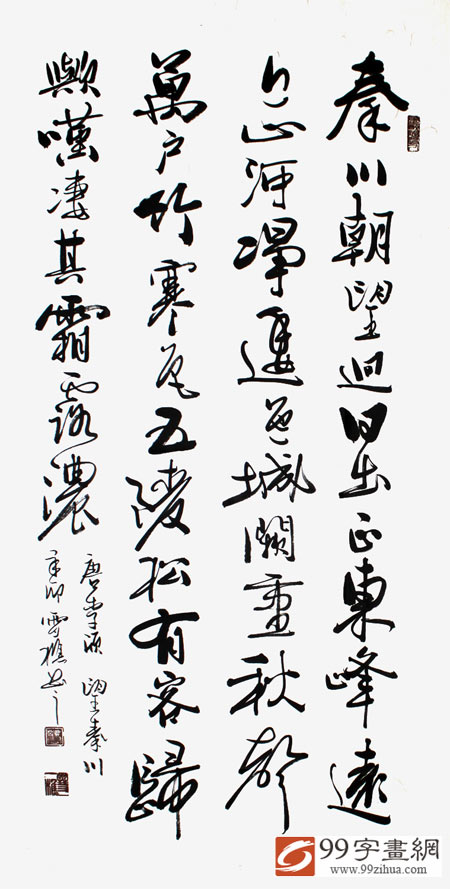 秦川朝望迥日出正東峰遠
近山河淨逶迤城闕重秋聲
萬戶竹寒色五陵松有客歸
歟嘆淒其霜露濃
唐李頎望秦川
辛卯雪樵書
99字畫網
www.99zihua.com